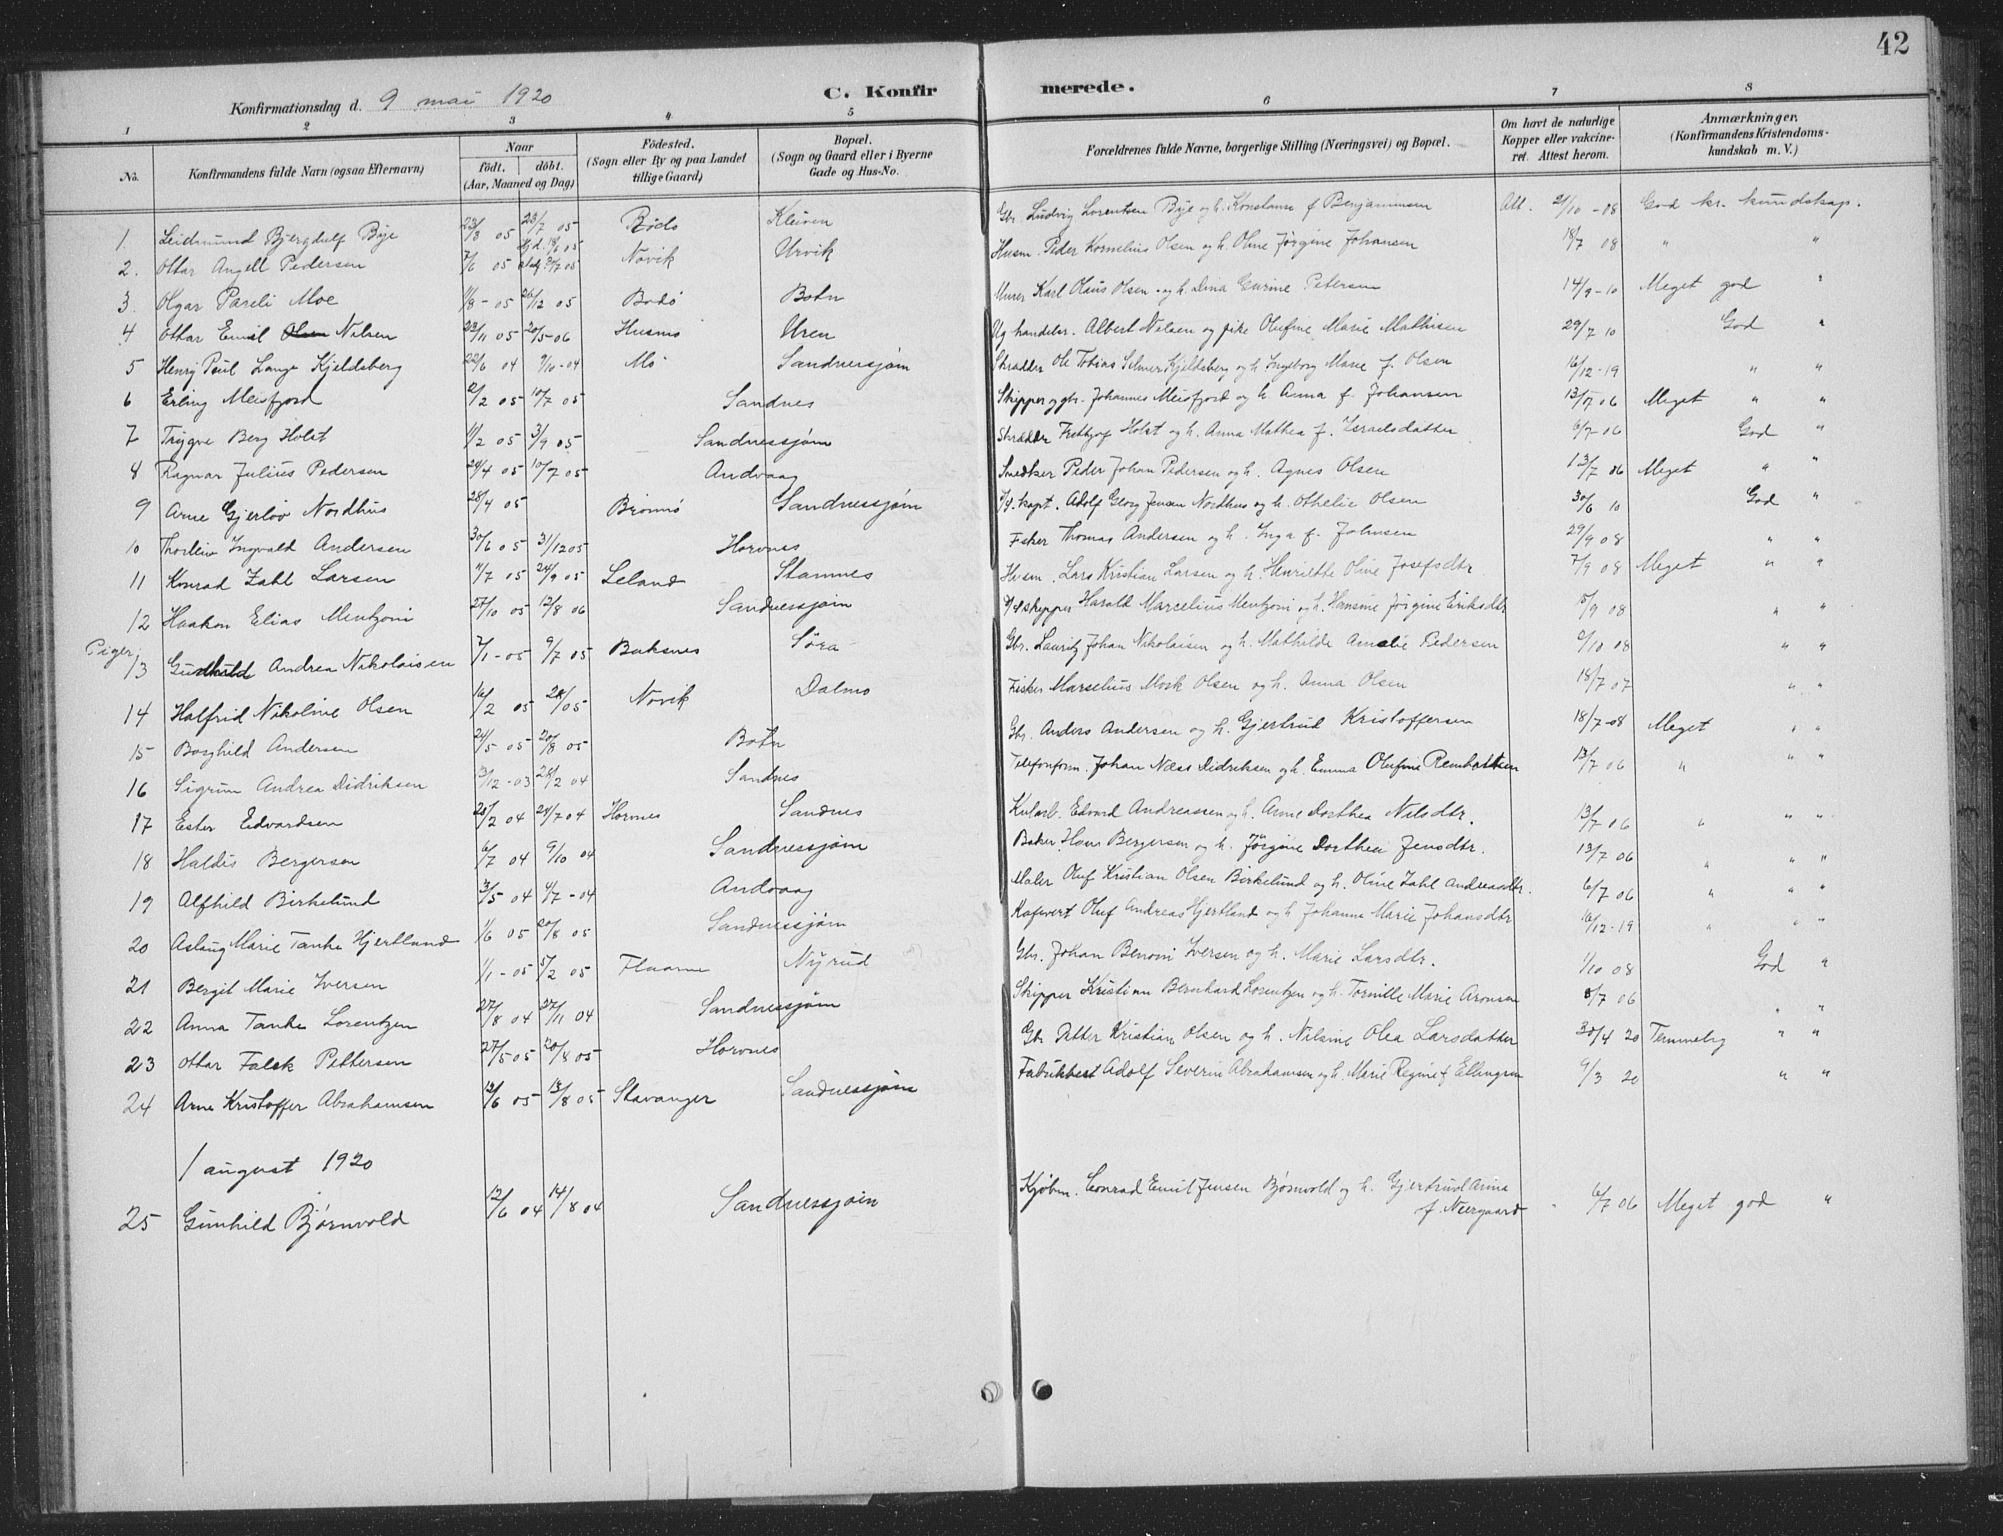 42
Konfirmationsdag d. 9 mai 1920 C. Konfirmerede.
1 2 3 4 5 6 7 8
No. Konfirmandens fulde Navn (ogsaa Efternavn) Naar födt. döbt. (Aar, Maaned og Dag) Födested. (Sogn eller By og paa Landet tillige Gaard) Bopæl. (Sogn og Gaard eller i Byerne Gade og Hus-No. Forældrenes fulde Navne, borgerlige Stilling (Næringsvei) og Bopæl. Om havt de naturlige Kopper eller vakcineret. Attest herom. Anmærkninger. (Konfirmandens Kristendomskundskab m. V.)
1. Leidmund Bjergdulf Bye 23/3 05 23/7 05 Bodo Kleiven Gbr. Ludvig Lorentzen Bye og h. Konstanse f Benjaminsen Att. 21/10 - 08 God kr. kundskap.
2. Ottar Angell Pedersen 7/6 05 Hjd. 18/6 05 Novik Urvik Husm. Peder Kornelius Olsen og h. Oline Jørgine Johansen 18/7 08 " "
3. Olgar Pareli Moe 11/8 - 05 26/12 05 Bodö Botn Murer Karl Olaus Olsen og h. Dina Gurine Petersen 14/9 - 10 Meget god "
4 Ottar Emil Nilsen 23/11 05 20/5 06 Husmo Uren Ug handelsr. Albert Nilsen og pike Olufine Marie Mathisen 29/7 10 God "
5 Henry Paul Lange Kjeldsberg 22/6 04 9/10 - 04 Mo Sandnessjøen Skrædder Ole Tobias Selmer Kjeldsberg og h Ingeborg Marie f. Olsen 16/12 - 19 " "
6 Erling Meisfjord 12/2 05 10/7 05 Sandnes Skipper og gbr. Johannes Meisfjord og h Anna f. Johansen 13/7 06 Meget " "
7 Trygve Berg Holst 11/2 05 3/9 05 Sandnessjøen Skrædder Fritjof Holst og h. Anna Mathea f. Israelsdatter 6/7 06 God "
8 Ragnar Julius Pedersen 24/4 05 10/7 05 Andvaag Snedker Peder Johan Pedersen og h. Agnes Olsen 13/7 06 Meget " "
9 Arne Gjerløv Nordhus 28/4 05 Brönnö Sandnessjøen kapt. Adolf Georg Jensen Nordhus og h. Othelie Olsen 30/6 10 God "
10 Thorleiv Ingvald Andersen 30/6 05 31/12 05 Horvnes Fisker Thomas Andersen og h. Inga f. Johnsen 29/9 08 " "
11 Konrad Zahl Larsen 11/7 05 24/9 05 Leland Stamnes Husm. Lars Kristian Larsen og h. Henriette Oline Josefsdtr. 7/9 08 Meget " "
12 Haakon Elias Mentzoni 27/10 05 12/8 06 Sandnessjøen skipper Harald Marcelius Mentzoni og h. Hansine Jørgine Eriksdtr 15/9 08 " "
Piger
13 Gudhild Andrea Nikolaisen 7/1 - 05 9/7 05 Buksnes Söra Gbr. Lauritz Johan Nikolaisen og h. Mathilde Amalie Pedersen 9/10 08 " "
14 Halfrid Nikoline Olsen 16/2 05 Novik Dalmo Fisker Marselius Mork Olsen og h. Anna Olsen 18/7 07 " "
15 Borghild Andersen 24/5 05 20/8 05 Botn Gbr. Anders Andersen og h. Gjertrud Kristoffersen 18/7 - 08 Meget " "
16 Sigrun Andrea Didriksen 13/12 - 03 28/2 04 Sandnes Telefonform. Johan Næss Didriksen og h. Emma Olufine 13/7 06 " " "
17 Ester Edvardsen 28/2 04 24/7 04 Horvnes Sandnes Kularb. Edvard Andreassen og h. Anne Dorthea Nilsdtr. 13/7 06 " " "
18 Haldis Bergersen 6/7 04 9/10 04 Sandnessjøen Baker Hans Bergersen og h. Jörgine Dorthea Jensdtr. 13/7 06 " " "
19 Alfhild Birkelund 3/5 04 4/7 - 04 Andvaag Maler Oluf Kristian Olsen Birkelund og h. Oline Zahl Andreasdtr. 6/7 06 " " "
20 Aslaug Marie Tanke Hjertland 1/6 05 20/8 05 Sandnessjøen Kafevert Oluf Andreas Hjertland og h Johanne Marie Johansdtr 16/12 - 19 " " "
21 Bergit Marie Iversen 1/1 - 05 5/2 05 Flaarne Nyrud Gbr. Johan Benoni Iversen og h. Marie Larsdtr. 1/10 08 God "
22 Anna Tanke Lorentzen 27/8 04 27/11 04 Sandnessjøen Skipper Kristian Bernhard Lorentzen og h. Tomille Marie Aronsen 8/7 06 " "
23 Ottar Falck Pettersen 27/5 05 20/8 05 Horvnes Gbr Petter Kristian Olsen og h. Nilsine Olea Larsdatter 30/4 20 Temmelig " "
24 Arne Kristoffer Abrahamsen 12/6 05 13/8 05 Stavanger Sandnessjøen Fabrikbest Adolf Severin Abrahamsen og h. Marie Regine f Ellingsen 9/3 20 " "
1 august 1920
25 Gunhild Bjørnvold 12/6 04 14/8 04 Sandnessjøen Kjøbm. Conrad Emil Jensen Bjørnvold og h. Gjertrud Anna f. Neergaard " 6/7 06 Meget god "